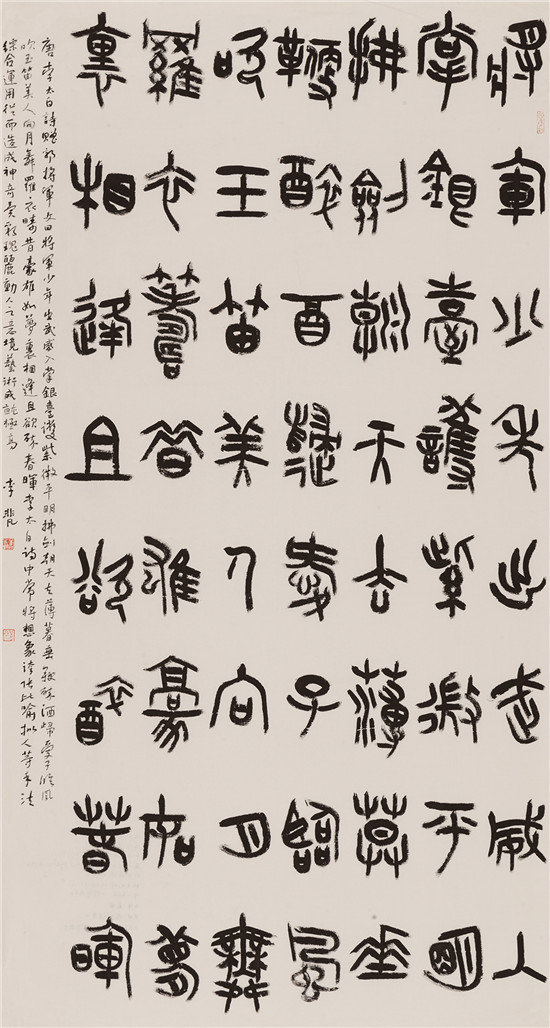 將軍少年出武威入
掌銀臺護紫微平明
拂劍朝天去薄暮垂
鞭醉酒歸愛子臨風
吹玉笛美人向月舞
羅衣疇昔雄豪如夢
裏相逢且欲醉春暉
唐李太白詩贈郭將軍文曰將軍少年出武威入掌銀臺護紫微平明拂劍朝天去薄暮垂鞭醉酒歸愛子臨風
吹玉笛美人向月舞羅衣疇昔豪雄如夢裏相逢且欲醉春暉李太白詩中常將想象誇張比喻拟人等手法
綜合運用從而造成神奇異彩瑰麗動人之意境藝術成就極高 李非凡